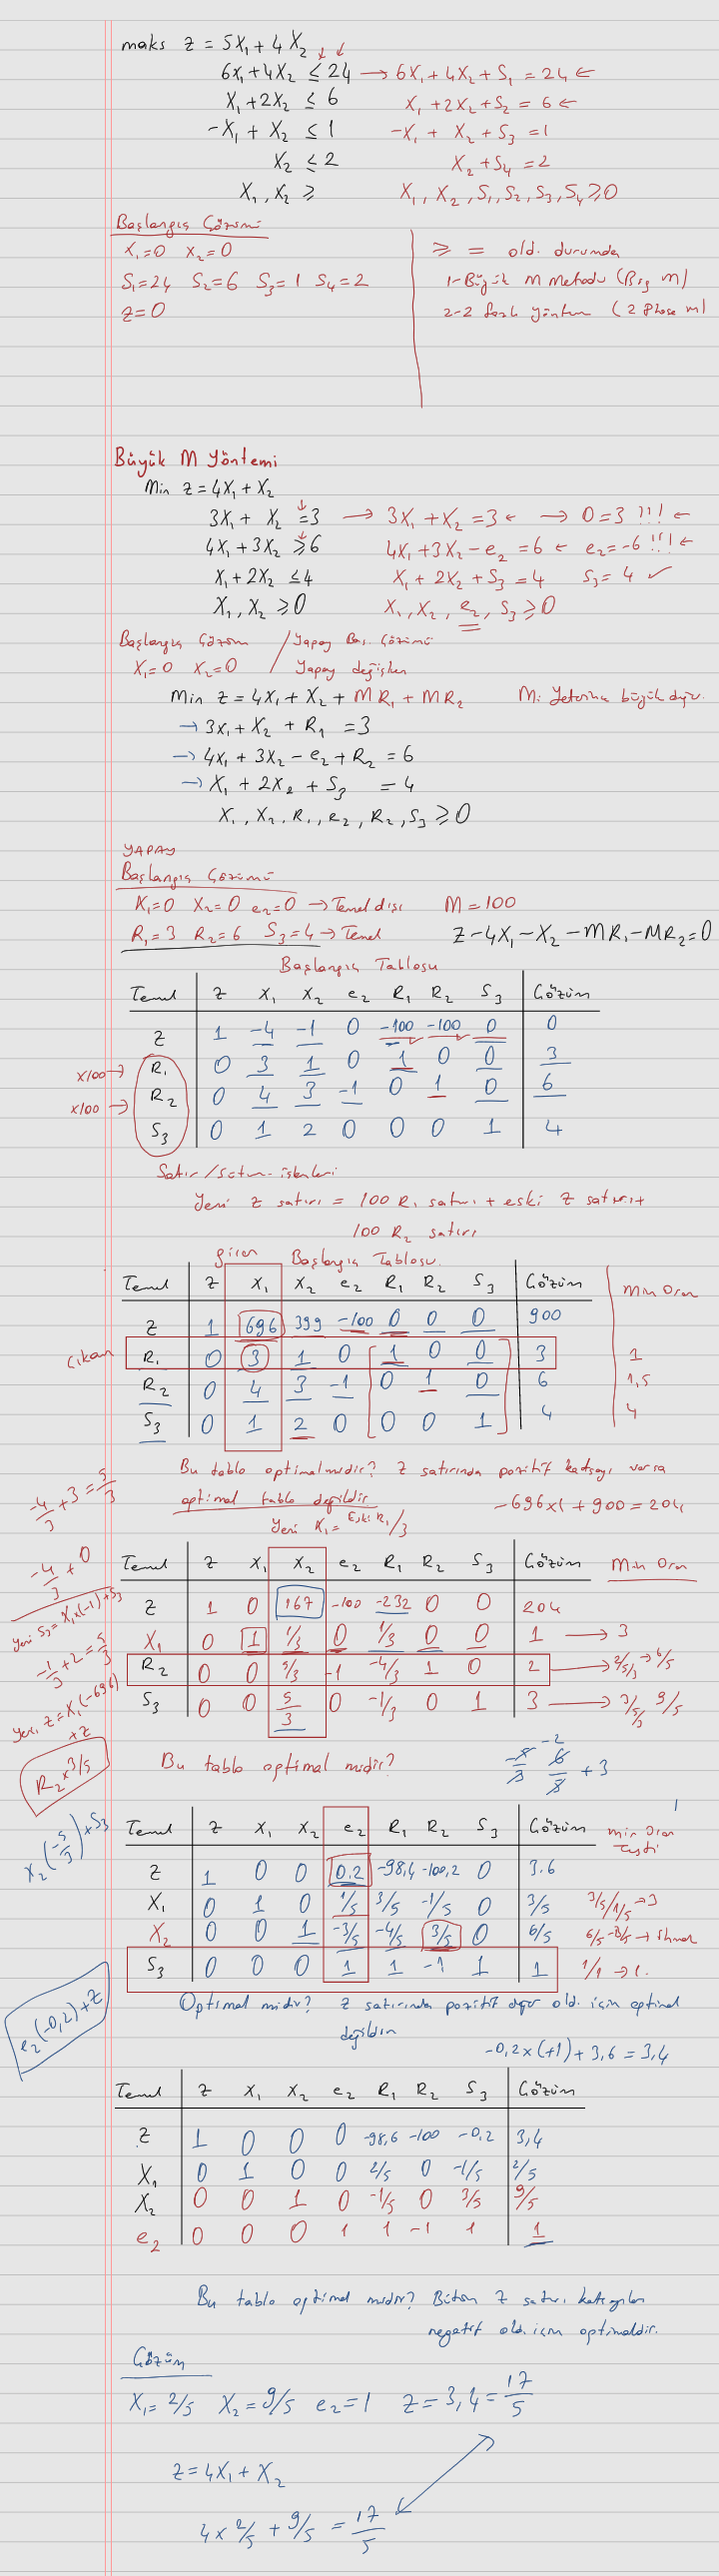 maks z = 5X₁ + 4X₂
6x₁ + 4X₂ ≤ 24 → 6X₁ + 4X₂ + S₁ = 24 ←
X₁ + 2X₂ ≤ 6 X₁ + 2X₂ + S₂ = 6 ←
-X₁ + X₂ ≤ 1 -X₁ + X₂ + S₃ = 1
X₂ ≤ 2 X₂ + S₄ = 2
X₁, X₂ ≥ X₁, X₂, S₁, S₂, S₃, S₄ ≥ 0
Başlangıç Çözümü
X₁=0 X₂=0
S₁=24 S₂=6 S₃=1 S₄=2
z=0
≥ = old. durumda
1-Büyük M Metodu (Big M)
2-2 fazlı yöntem (2 Phase m)
Büyük M Yöntemi
Min z = 4X₁ + X₂
3X₁ + X₂ = 3 → 3X₁ + X₂ = 3 ← → 0=3 !!! ←
4X₁ + 3X₂ ≥ 6 4X₁ + 3X₂ - e₂ = 6 ← e₂=-6 !!! ←
X₁ + 2X₂ ≤ 4 X₁ + 2X₂ + S₃ = 4 S₃ = 4 ✓
X₁, X₂ ≥ 0 X₁, X₂, e₂, S₃ ≥ 0
Başlangıç Çözüm / Yapay Baş. Çözümü
X₁=0 X₂=0 / Yapay değişken
Min z = 4X₁ + X₂ + MR₁ + MR₂ M: Yeterince büyük değer.
→ 3x₁ + X₂ + R₁ = 3
→ 4X₁ + 3X₂ - e₂ + R₂ = 6
→ X₁ + 2X₂ + S₃ = 4
X₁, X₂, R₁, e₂, R₂, S₃ ≥ 0
YAPAY
Başlangıç Çözümü
X₁=0 X₂=0 e₂=0 → Temel dışı M=100
R₁=3 R₂=6 S₃=4 → Temel Z-4X₁-X₂-MR₁-MR₂=0
Başlangıç Tablosu
Temel Z X₁ X₂ e₂ R₁ R₂ S₃ Çözüm
Z 1 -4 -1 0 -100 -100 0 0
x100 → R₁ 0 3 1 0 1 0 0 3
x100 → R₂ 0 4 3 -1 0 1 0 6
S₃ 0 1 2 0 0 0 1 4
Satır/sütun işlemleri
Yeni z satırı = 100 R₁ satırı + eski z satırı +
100 R₂ satırı
giren Başlangıç Tablosu
Temel Z X₁ X₂ e₂ R₁ R₂ S₃ Çözüm Min Oran
Z 1 696 399 -100 0 0 0 900
Çıkan R₁ 0 3 1 0 1 0 0 3 1
R₂ 0 4 3 -1 0 1 0 6 1,5
S₃ 0 1 2 0 0 0 1 4 4
Bu tablo optimal midir? Z satırında pozitif katsayı varsa
optimal tablo değildir -696x1 + 900 = 204
Yeni X₁ = Eski R₁/3
-4/3 + 3 = 5/3
-4/3 + 0
Temel Z X₁ X₂ e₂ R₁ R₂ S₃ Çözüm Min Oran
Z 1 0 167 -100 -232 0 0 204
X₁ 0 1 1/3 0 1/3 0 0 1 → 3
R₂ 0 0 5/3 -1 -4/3 1 0 2 → 2/5/3 → 6/5
S₃ 0 0 5/3 0 -1/3 0 1 3 → 3/5/3 9/5
yeni S₃ = X₁x(-1) + S₃
-1/3 + 2 = 5/3
Yeni z = X₁(-696) + z
R₂ x 3/5
Bu tablo optimal midir? -5/3 6/5 + 3
-2
X₂(-5/3) + S₃
Temel Z X₁ X₂ e₂ R₁ R₂ S₃ Çözüm min Oran Testi
Z 1 0 0 0,2 -98,4 -100,2 0 3.6
X₁ 0 1 0 1/5 3/5 -1/5 0 3/5 3/5/1/5 → 3
X₂ 0 0 1 -3/5 -4/5 3/5 0 6/5 6/5/-3/5 → ihmal
S₃ 0 0 0 1 1 -1 1 1 1/1 → 1.
Optimal midir? Z satırında pozitif değer old. için optimal
değildir
e₂(-0,2) + z
-0,2x(+1) + 3,6 = 3,4
Temel Z X₁ X₂ e₂ R₁ R₂ S₃ Çözüm
Z 1 0 0 0 -98,6 -100 -0,2 3,4
X₁ 0 1 0 0 2/5 0 -1/5 2/5
X₂ 0 0 1 0 -1/5 0 3/5 9/5
e₂ 0 0 0 1 1 -1 1 1
Bu tablo optimal midir? Bütün Z satırı katsayıları
negatif old. için optimaldir.
Çözüm
X₁= 2/5 X₂= 9/5 e₂=1 Z=3,4=17/5
Z=4X₁+X₂
4x 2/5 + 9/5 = 17/5